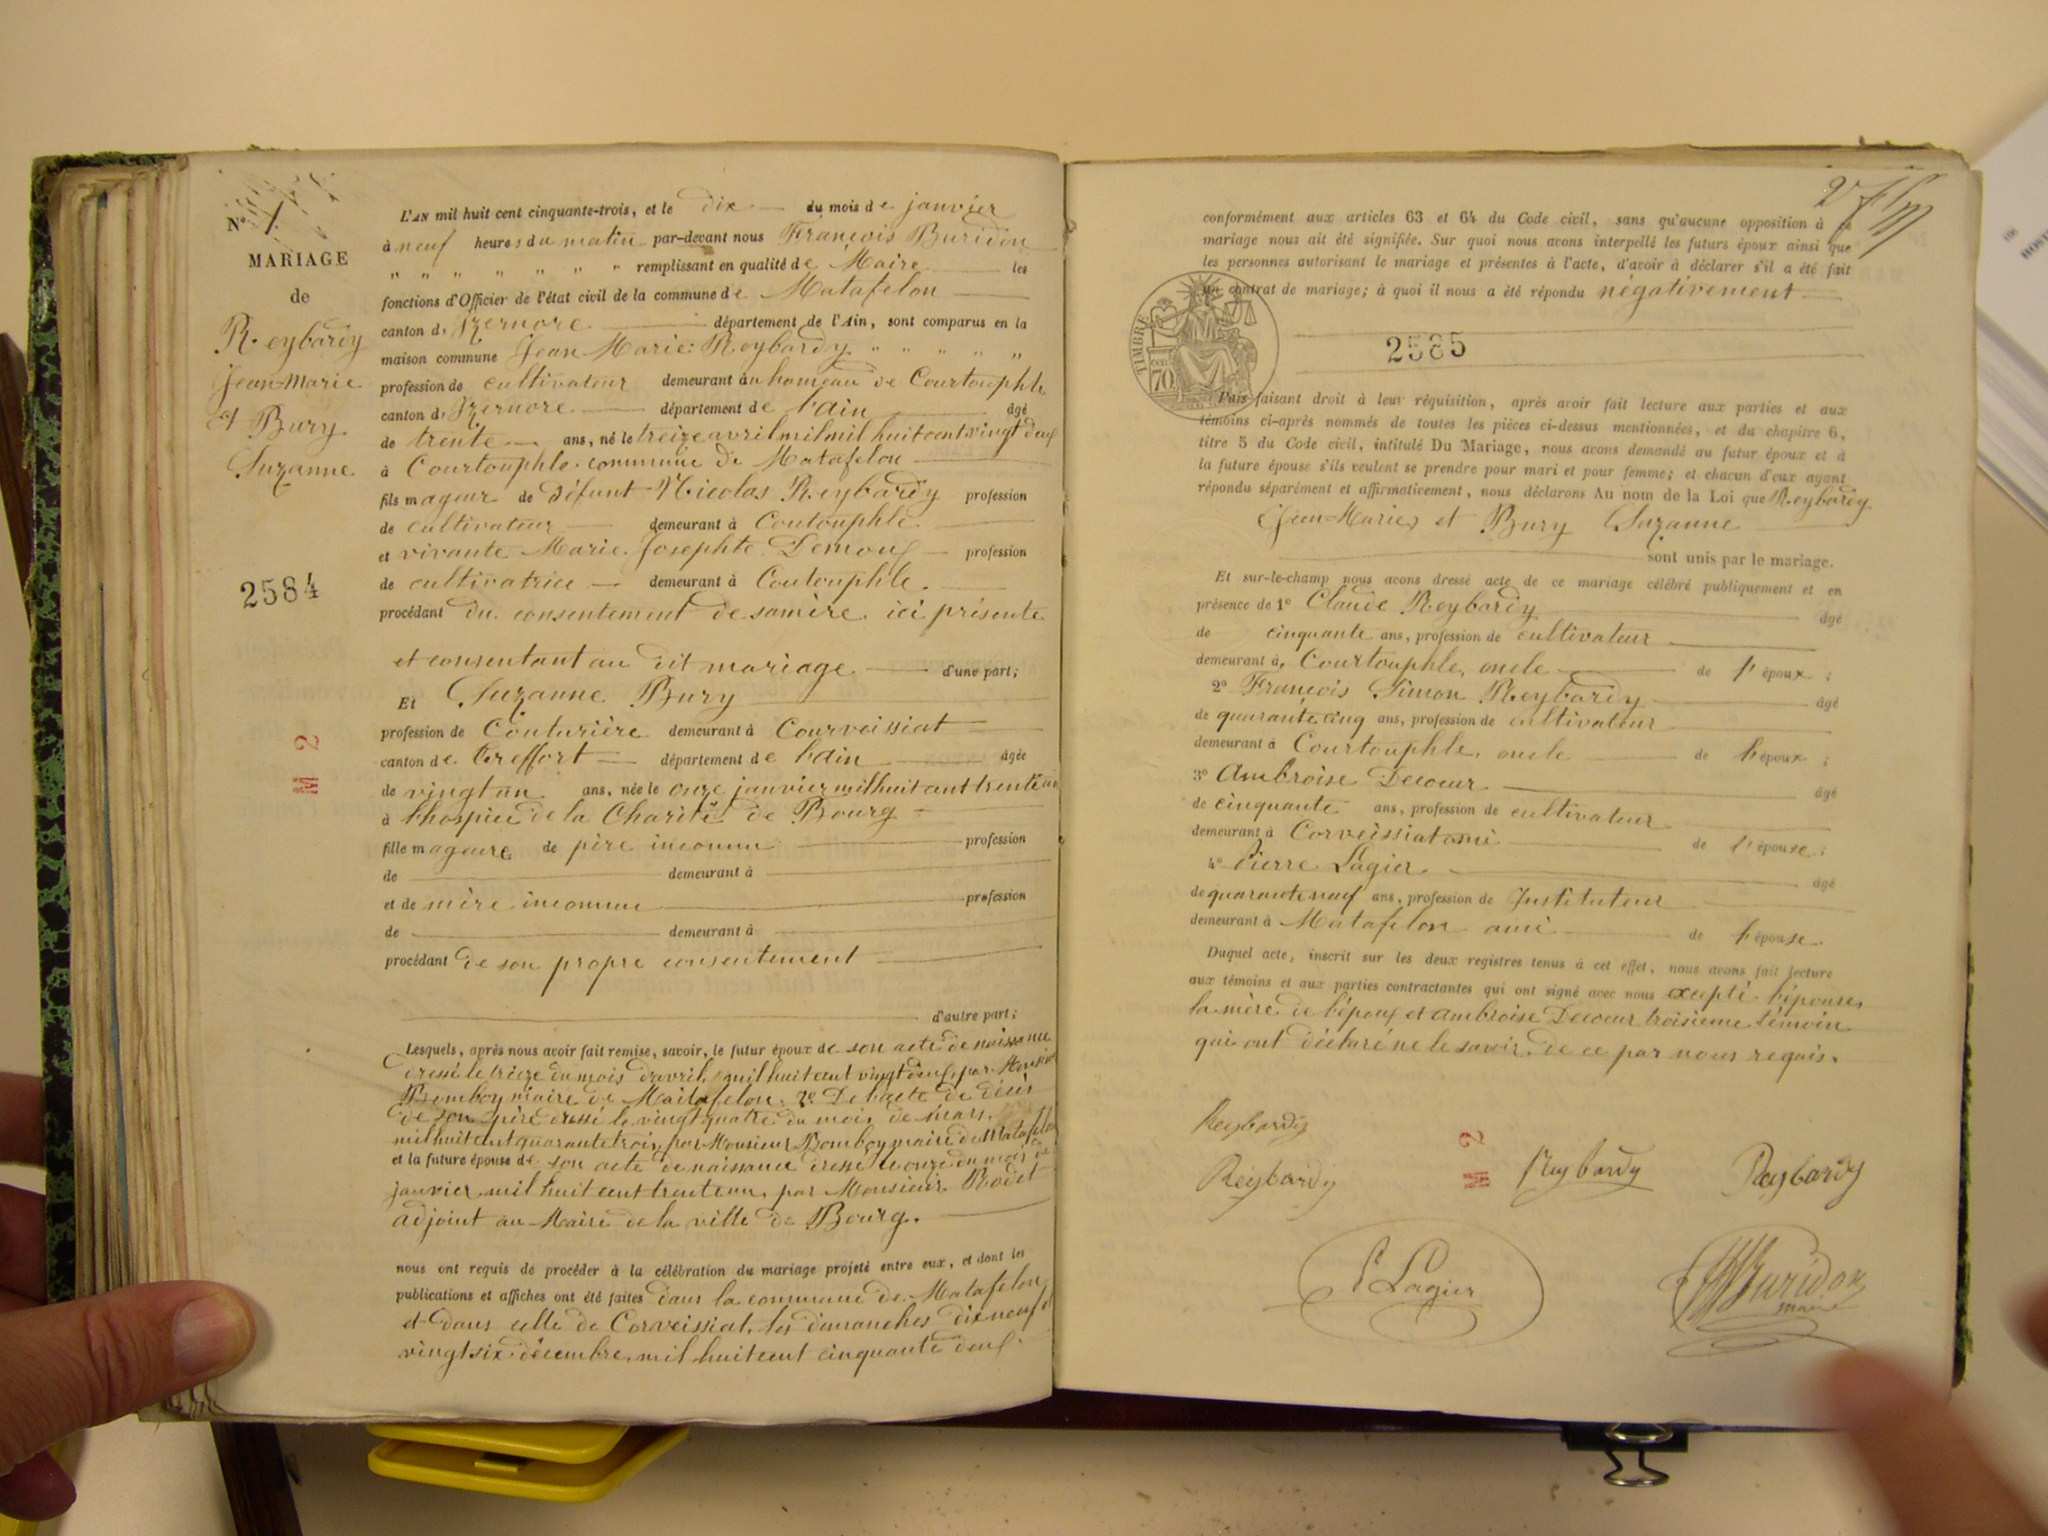 N° 1
MARIAGE
de
Reybardy
Jean-Marie
et Bury
Suzanne
2584
M 2
L'AN mil huit cent cinquante-trois, et le dix du mois de janvier
à neuf heures du matin par-devant nous François Buridon
" " " " " " " remplissant en qualité de Maire les
fonctions d'Officier de l'état civil de la commune de Matafelon
canton d'Izernore département de l'Ain, sont comparus en la
maison commune Jean Marie Reybardy " " " " "
profession de cultivateur demeurant au hameau de Courtouphle
canton d'Izernore département de l'ain âgé
de trente ans, né le treize avril mil mil huit cent vingt deux
à Courtouphle commune de Matafelon
fils mageur de défunt Nicolas Reybardy profession
de cultivateur demeurant à Coutouphle
et vivante Marie Josephte profession
de cultivatrice demeurant à Coutouphle.
procédant du consentement de sa mère ici présente
et consentant au dit mariage d'une part;
Et Suzanne Bury
profession de Couturière demeurant à Corveissiat
canton de Treffort département de l'ain âgée
de vingt un ans, née le onze janvier mil huit cent trente un
à l'hospice de la Charité de Bourg
fille mageure de père inconnu profession
de demeurant à
et de mère inconnue profession
de demeurant à
procédant de son propre consentement
d'autre part;
Lesquels, après nous avoir fait remise, savoir, le futur époux de son acte de naissance
dressé le treize du mois d'avril mil huit cent vingt deux, par Monsieur
Bomboy maire de Matafelon. 2° De l'acte de décès
de son père dressé le vingt quatre du mois de mars
mil huit cent quarante trois, par Monsieur Bomboy maire de Matafelon
et la future épouse de son acte de naissance dressé le onze du mois de
janvier mil huit cent trente un, par Monsieur Rodet
adjoint au Maire de la ville de Bourg.
nous ont requis de procéder à la célébration du mariage projeté entre eux, et dont les
publications et affiches ont été faites dans la commune de Matafelon
et dans celle de Corveissiat, les dimanches dix neuf et
vingt six décembre mil huit cent cinquante deux.
conformément aux articles 63 et 64 du Code civil, sans qu'aucune opposition à ce
mariage nous ait été signifiée. Sur quoi nous avons interpellé les futurs époux ainsi que
les personnes autorisant le mariage et présentes à l'acte, d'avoir à déclarer s'il a été fait
un contrat de mariage; à quoi il nous a été répondu négativement
TIMBRE
70
2585
Puis faisant droit à leur réquisition, après avoir fait lecture aux parties et aux
témoins ci-après nommés de toutes les pièces ci-dessus mentionnées, et du chapitre 6,
titre 5 du Code civil, intitulé Du Mariage, nous avons demandé au futur époux et à
la future épouse s'ils veulent se prendre pour mari et pour femme; et chacun d'eux ayant
répondu séparément et affirmativement, nous déclarons Au nom de la Loi que Reybardy
Jean-Marie, et Bury Suzanne
sont unis par le mariage.
Et sur-le-champ nous avons dressé acte de ce mariage célébré publiquement et en
présence de 1° Claude Reybardy âgé
de cinquante ans, profession de cultivateur
demeurant à Courtouphle, oncle de l'époux;
2° François Simon Reybardy âgé
de quarante cinq ans, profession de cultivateur
demeurant à Courtouphle, oncle de l'époux;
3° Ambroise Decoeur âgé
de cinquante ans, profession de cultivateur
demeurant à Corveissiat ami de l'épouse;
4° Pierre Lagier âgé
de quarante neuf ans, profession de Instituteur
demeurant à Matafelon ami de l'épouse.
Duquel acte, inscrit sur les deux registres tenus à cet effet, nous avons fait lecture
aux témoins et aux parties contractantes qui ont signé avec nous excepté l'épouse,
la mère de l'époux et Ambroise Decoeur troisième témoin
qui ont déclaré ne le savoir, de ce par nous requis.
Reybardy
Reybardy
M 2
Reybardy
Reybardy
P Lagier
Buridon
maire